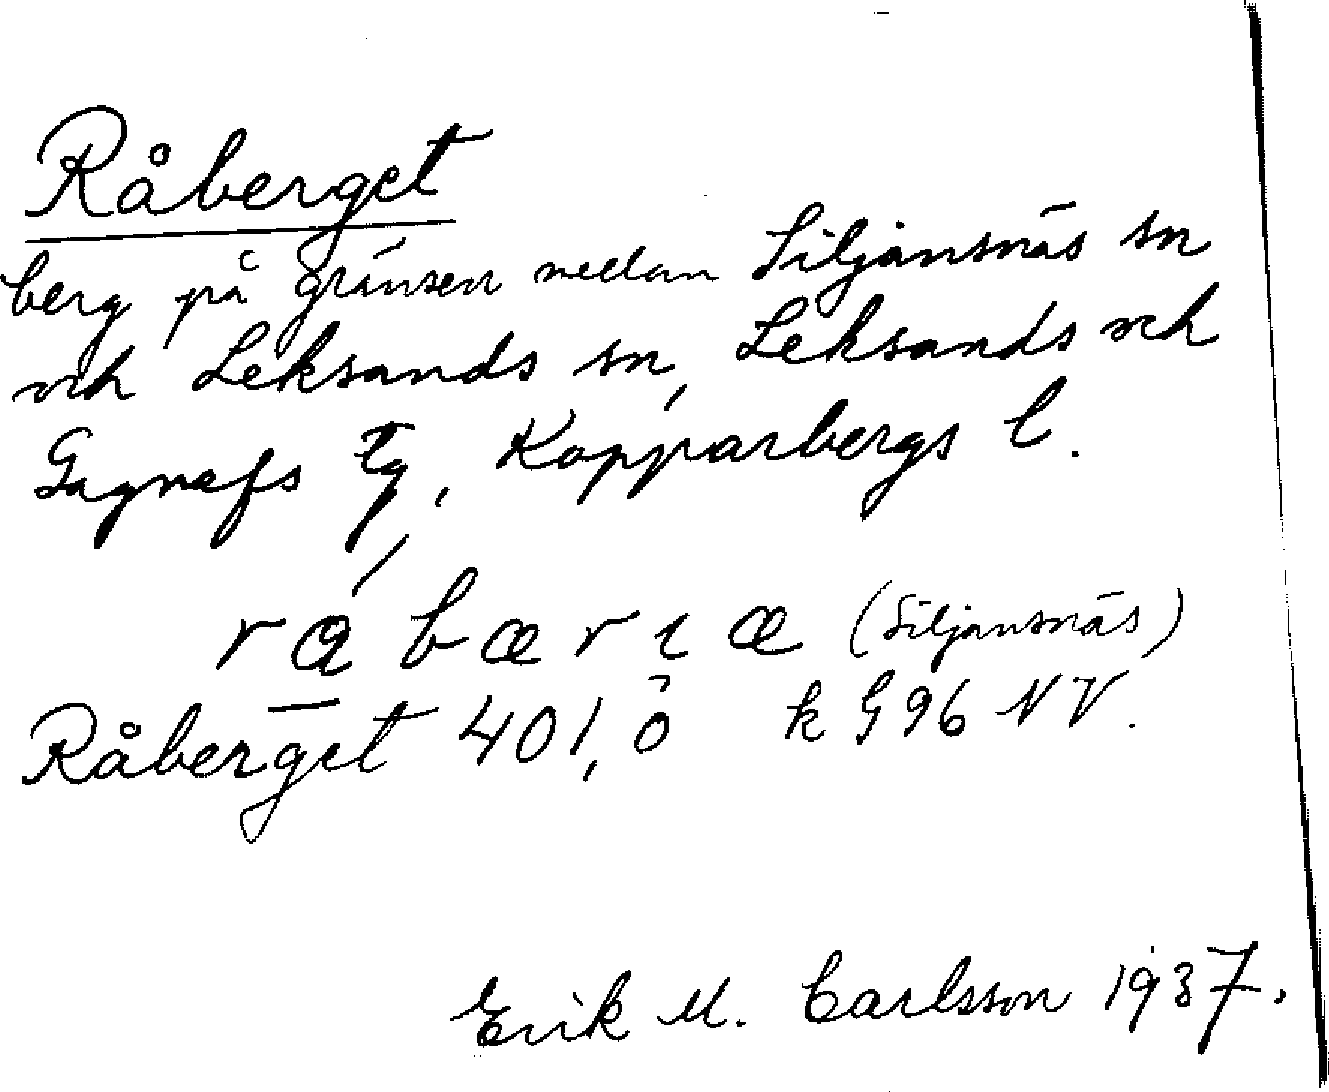 Råberget
berg på gränsen mellan Siljansnäs sn
och Leksands sn, Leksands och
Gagnefs tg, Kopparbergs l.
(Siljansnäs)
Råberget 401,0 k G96 NV.
Erik M. Carlsson 1937.